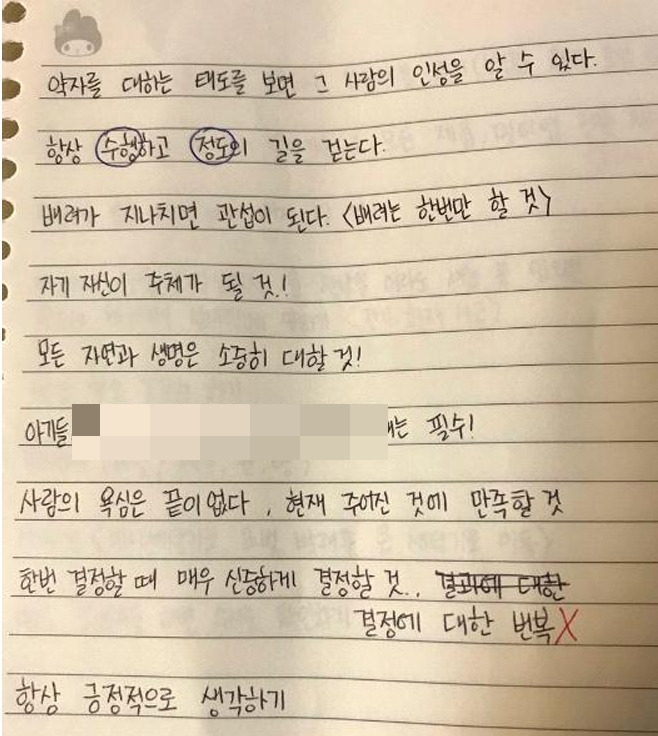 약자를 대하는 태도를 보면 그 사람의 인성을 알 수 있다.
항상 수행하고 정도의 길을 걷는다.
배려가 지나치면 관섭이 된다. <배려는 한번만 할 것>
자기 자신이 주체가 될 것!
모든 자연과 생명은 소중히 대할 것!
아기들 는 필수!
사람의 욕심은 끝이 없다, 현재 주어진 것에 만족할 것
한번 결정할 때 매우 신중하게 결정할 것.. 결과에 대한
결정에 대한 번복 X
항상 긍정적으로 생각하기